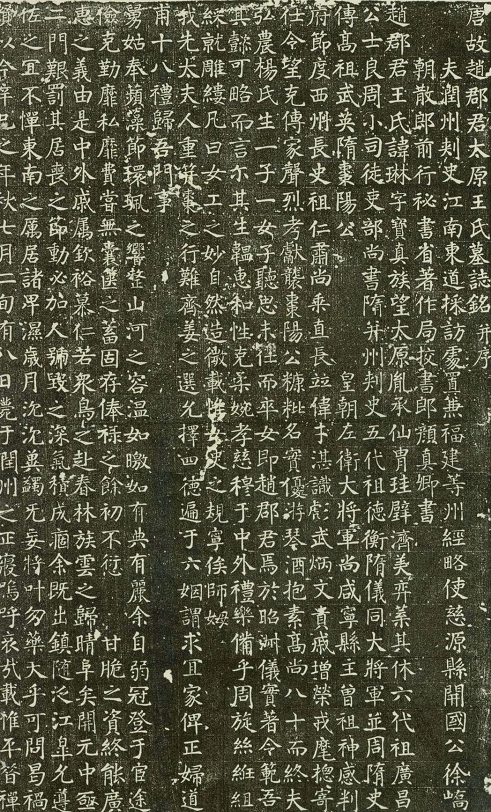 唐故趙郡君太原王氏墓誌銘并序
夫閏州刺史江南東道採訪處置兼福建等州經略使慈源縣開國公徐嶠
朝散郎前行祕書省著作局校書郎顏真卿書
趙郡君王氏諱琳字寶真族望太原胤承仙冑珪璧濟美弈葉其休六代祖廣昌
公士良周小司徒吏部尚書隋并州刺史五代祖德衡隋儀同大將軍並周隋史
傳高祖武英隋棗陽公 皇朝左衛大將軍尚咸寧縣主曾祖神感判
府節度西州長史祖仁肅尚乘直長竝偉才湛識彪武炳文貴戚增榮戎麾摠寄
任令望克傳家聲烈考獻襲棗陽公糠粃名實優游琴酒抱素高尚八十而終夫
弘農楊氏生一子一女子聽忠未徃而卒女即趙郡君焉於昭淑儀實著令範吾
其懿可略而言尒其生韞惠和性克柔婉孝慈穆于中外禮樂備乎周旋絲紝組
紩就雕縷凡曰女工之妙自然造微載惟女史之規寧俟師姆
我先太夫人重棗之行難齊姜之選允擇四德遍于六姻謂求宜家俾正婦道
甫十八禮歸吾門事
姑奉蘋藻節環珮之響整山河之容溫如曒如有典有麗余自弱冠登于宦途
儉克勤靡私靡費嘗無囊篋之蓄固存俸祿之餘初不愆 甘脆之資終能廣
惠之義由是中外戚屬欽裕慕仁若衆鳥之赴春林族雲之歸晴阜矣開元中亟
二門艱罰其居喪之節動必加人號毀之深氣積成痼余既出鎮隨泛江皐允遵
佐之宜不憚東南之厲居諸卑濕歲月沈沈兾蠲旡妄將叶勿藥大乎可問曷禍
以今辛巳之年秋七月二旬有八日薨于閏州之正寢嗚呼哀哉載惟平昔禪